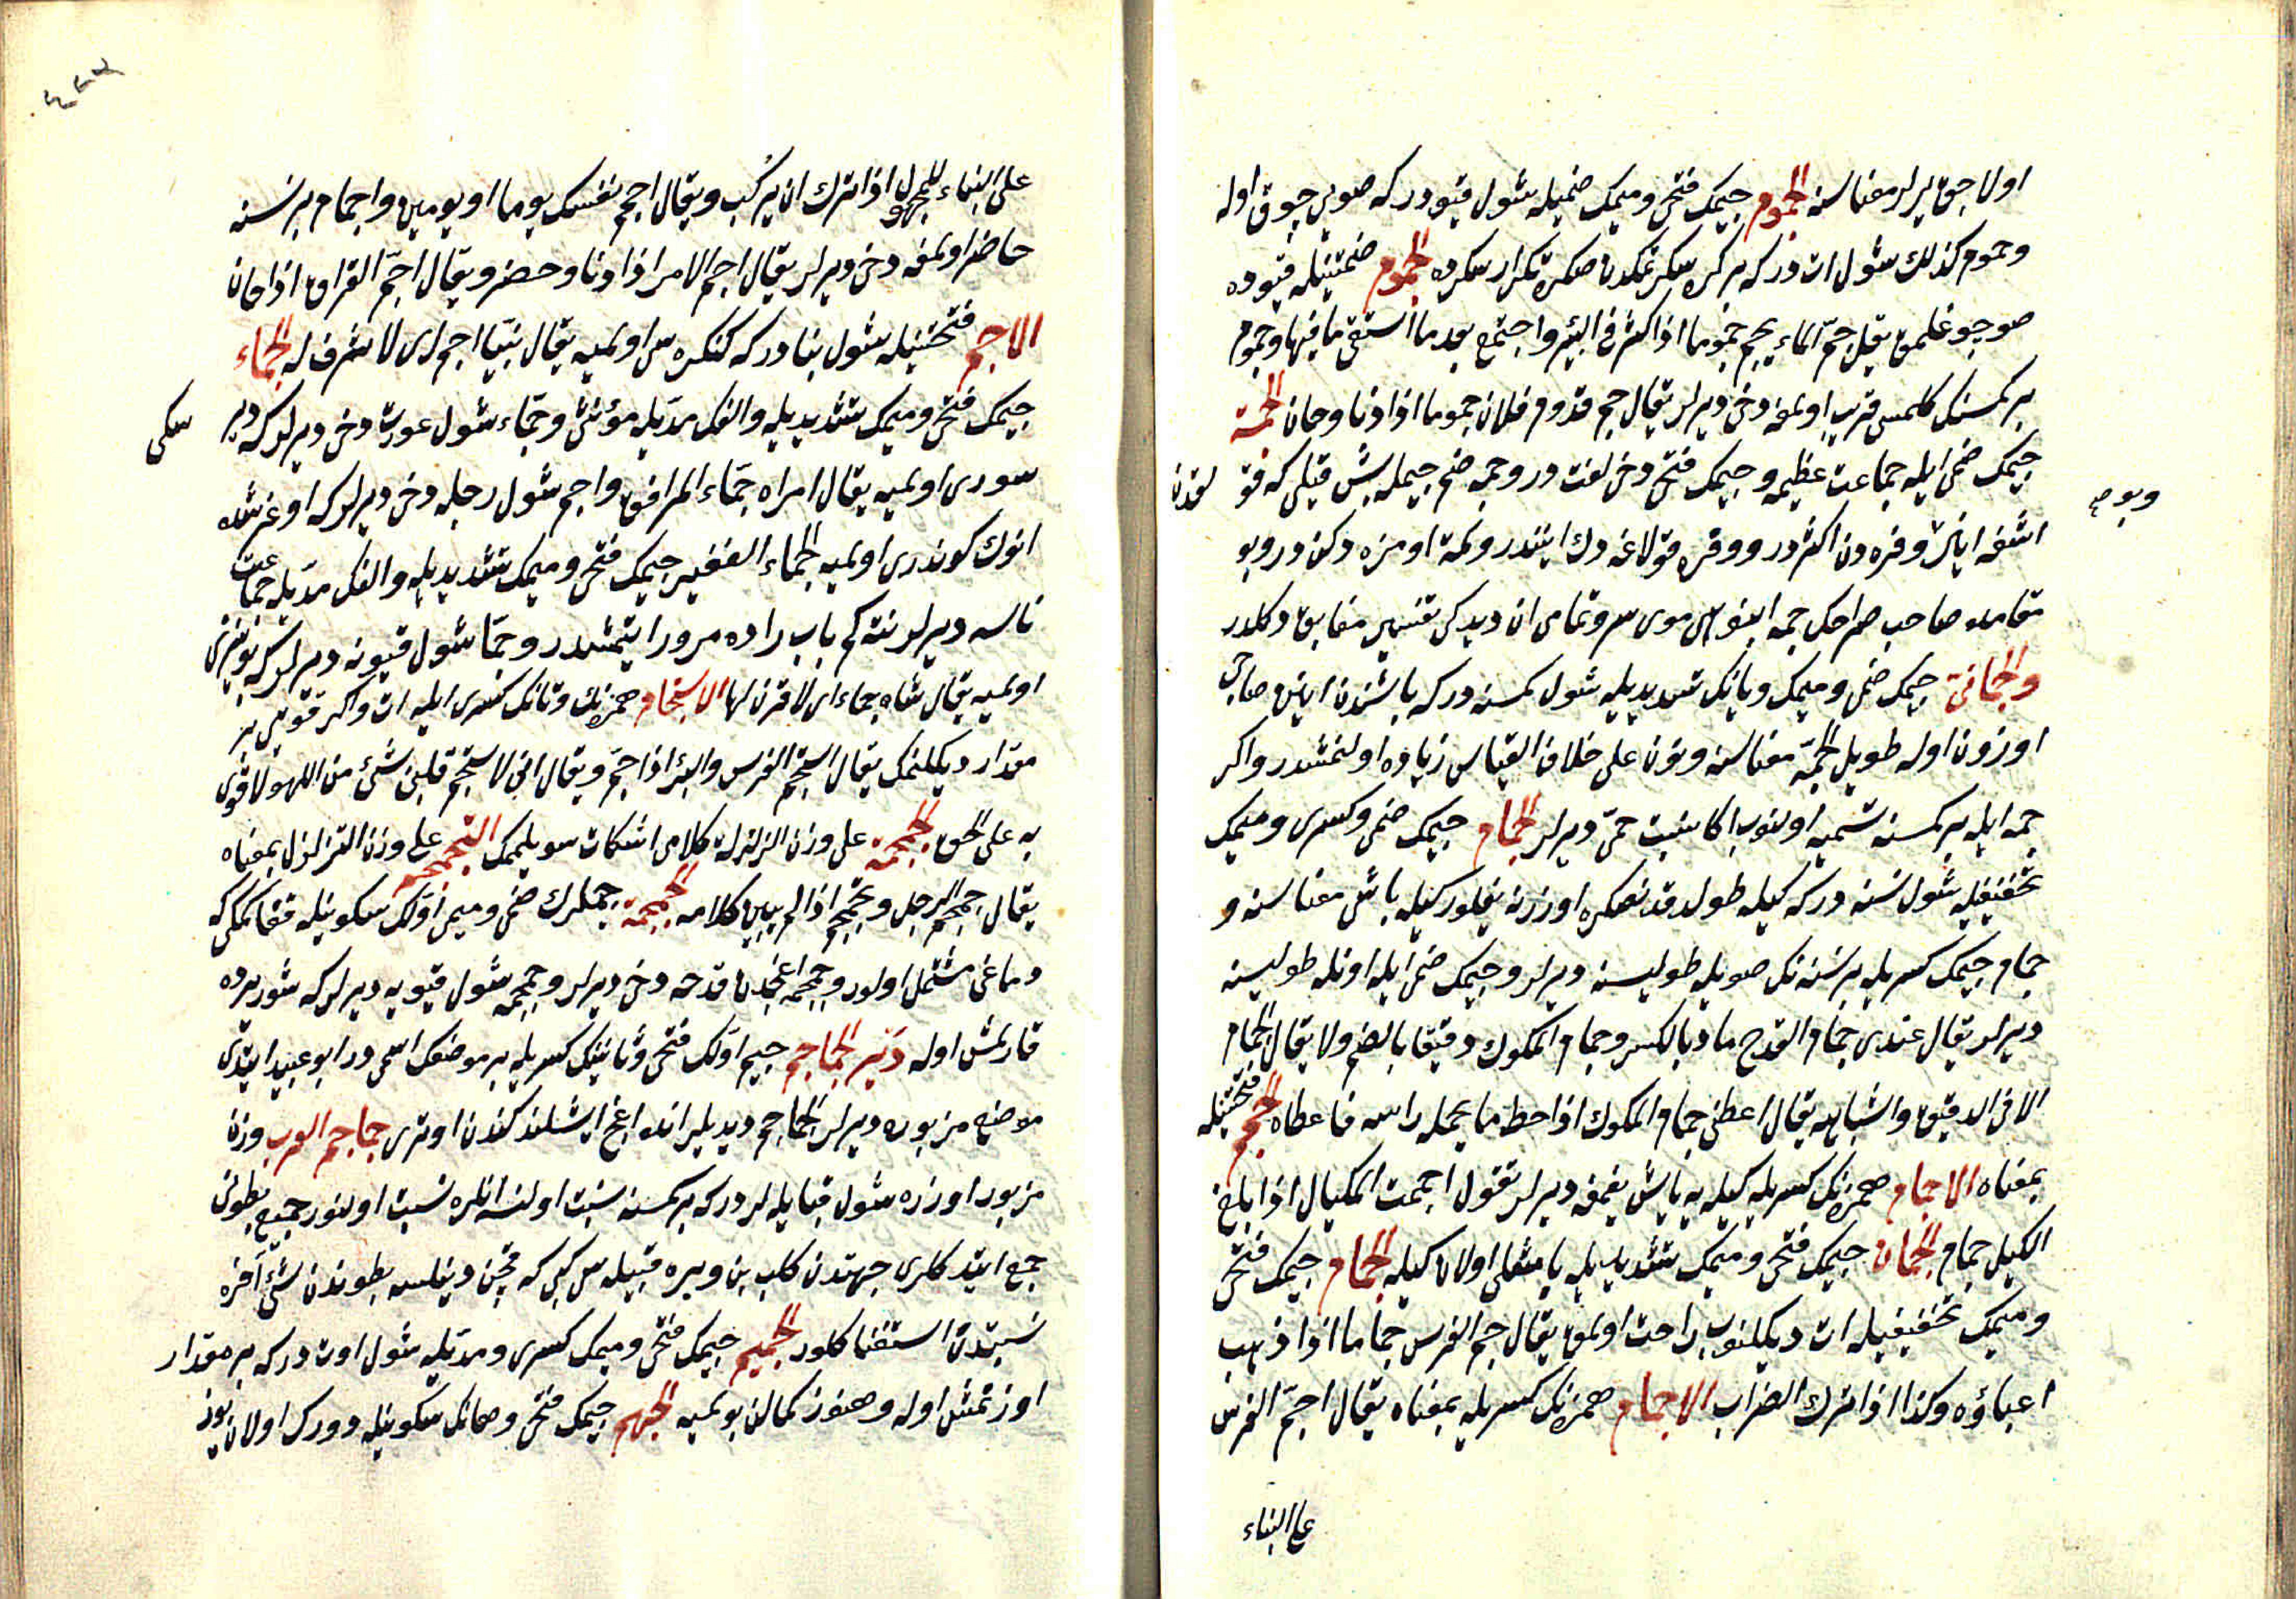 اولاجق یرلر معناسنه الجموم جیمك فتحی و میمك ضمیله شول قیودر كه صویی چوق اوله
وجموم كذلك شول ات در كه بر كره سكرتمكدن صكره تكرار سكرده الجموم ضمتینله قیوده
صو چوغلمق یقال جمّ الماء یجم جموما اذا كثر فی البئر واجتمع بعد ما استقی ما فیها وجموم
بر كمسنك كلمسی قریب اولمغه دخی دیرلر یقال جم قدوم فلان جموما اذا دنا وحان الجمة
جیمك ضمی ایله جماعت عظیمه و جیمك فتحی دخی لغت در وجمه ضم جیمله باش قیلی كه قولقدن
اشغه اینر وفره دن اكثر در ووفره قولاغه دك ایندر ولمه اومزه دكن در وبو
وبو
مقامده صاحب صراح جمه انبوهی موی سر وتمامی ان دیدكی تفسیر مفابق دكلدر
والجمانی جیمك ضمی و میمك ویانك تشدیدیله شول كمسنه در كه باشندن اینن صاچی
اوزون اوله طویل الجمة معناسنه ونون علی خلاف القیاس زیاده اولنمشدر واكر
جمه ایله بر كمسنه تسمیه اولنوب اكا نسبت جمّی دیرلر الجمام جیمك ضمی وكسری و میمك
تخفیفیله شول نسنه در كه كیله طولدقدنصكره اوزرنه یغلور كیله باشی معناسنه و
جمام جیمك كسریله بر نسنه نك صویله طولیسنه دیرلر و جیمك ضمی ایله اونله طولیسنه
دیرلر یقال عندی جمام القدح ماء بالكسر وجمام المكوك دقیقا بالضم ولا یقال الجمام
الا فی الدقیق واشباهه یقال اعطنی جمام المكوك اذا حط ما یحمله راسه فاعطاه الجمم فتحتینله
بمعناه الاجمام همزه نك كسریله كیله یه باش یغمغه دیرلر تقول اجممت المكیال اذا بلغ
الكیل جمامه الجمان جیمك فتحی و میمك تشدیدیله باشلی اولان كیله الجمام جیمك فتحی
و میمك تخفیفیله ات دیكلنوب راحت اولمق یقال جم الفرس جماما اذا ذهب
اعیاؤه وكذا اذا ترك الضراب الاجمام همزه نك كسریله بمعناه یقال اجمّ الفرس
علی البناء
علی البناء للمجهول اذا ترك ان یركب ویقال اجم نفسك یوما او یومین واجمام بر نسنه
حاضر اولمغه دخی دیرلر یقال اجم الامر اذا دنا وحضر ویقال اجمّ الفراق اذا حان
الاجم فتحتینله شول بنا در كه كنكره سی اولمیه یقال بنیا اجم ای لا شرف له الجماء
جیمك فتحی و میمك تشدیدیله والفك مدّیله مؤنثی وجمّاء شول عورته دخی دیرلر كه دیر
سكی
سوری اولمیه یقال امراه جمّاء المرافق واجم شول رجله دخی دیرلر كه اوغرشده
انوك كوندری اولمیه الجماء الغفیر جیمك فتحی و میمك تشدیدیله والفك مدّیله جماعت
ناسه دیرلر نته كم باب راده مرور ایتمشدر وجمّا شول قیونه دیرلر كه بوینزی
اولمیه یقال شاه جماء ای لا قرن لها الاستجمام همزه نك وتانك كسری ایله ات واكر قویی بر
مقدار دیكلنمك یقال استجم الفرس والبئر اذا جمّ ویقال انی لاستجم قلبی بشئ من اللهو لاقوی
به علی الحق الجمجمة علی وزن الزلزلة كلامی اشكاره سویلممك التجمجم علی وزن التزلزل بمعناه
یقال جمجم الرجل وتجمجم اذا لم یبین كلامه الجمجمة جیملرك ضمی و میمی اوّلك سكونیله قفا كمكی كه
دماغی مشتمل اولور وجمجمه اغجدن قدحه دخی دیرلر وجمجمه شول قیویه دیرلر كه شوره یرده
قازلمش اوله دیر الجماجم جیم اوّلك فتحی وثانینك كسریله بر موضعك اسمی در ابو عبید ایتدی
موضع مزبوره دیر الجماجم دیدیلر انده اغج ایشلندكندن اوتری جماجم العرب وزن
مزبور اوزره شول قبایله لردر كه بر كمسنه نسبت اولنسه انلره نسبت اولنور جمیع بطونی
جمع ایتدكلری جهتدن كلب بن وبره قبیله سی كبی كه قچن دینلسه بطوندن شئ آخره
نسبتدن استغنا كلور الجمیم جیمك فتحی و میمك كسری ومدّیله شول اوت در كه بر مقدار
اوزنمش اوله وهنوز كمالن بولمیه الجهم جیمك فتحی وهانك سكونیله دورك اولان یوز